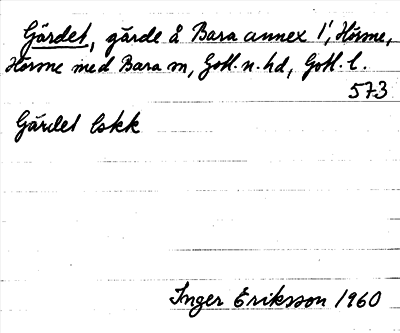 Gärdet, gärde å Bara annex 1', Hörsne,
Hörsne med Bara sn, Gotl. n. hd, Gotl. l.
573
Gärdet Eskk
Inger Eriksson 1960